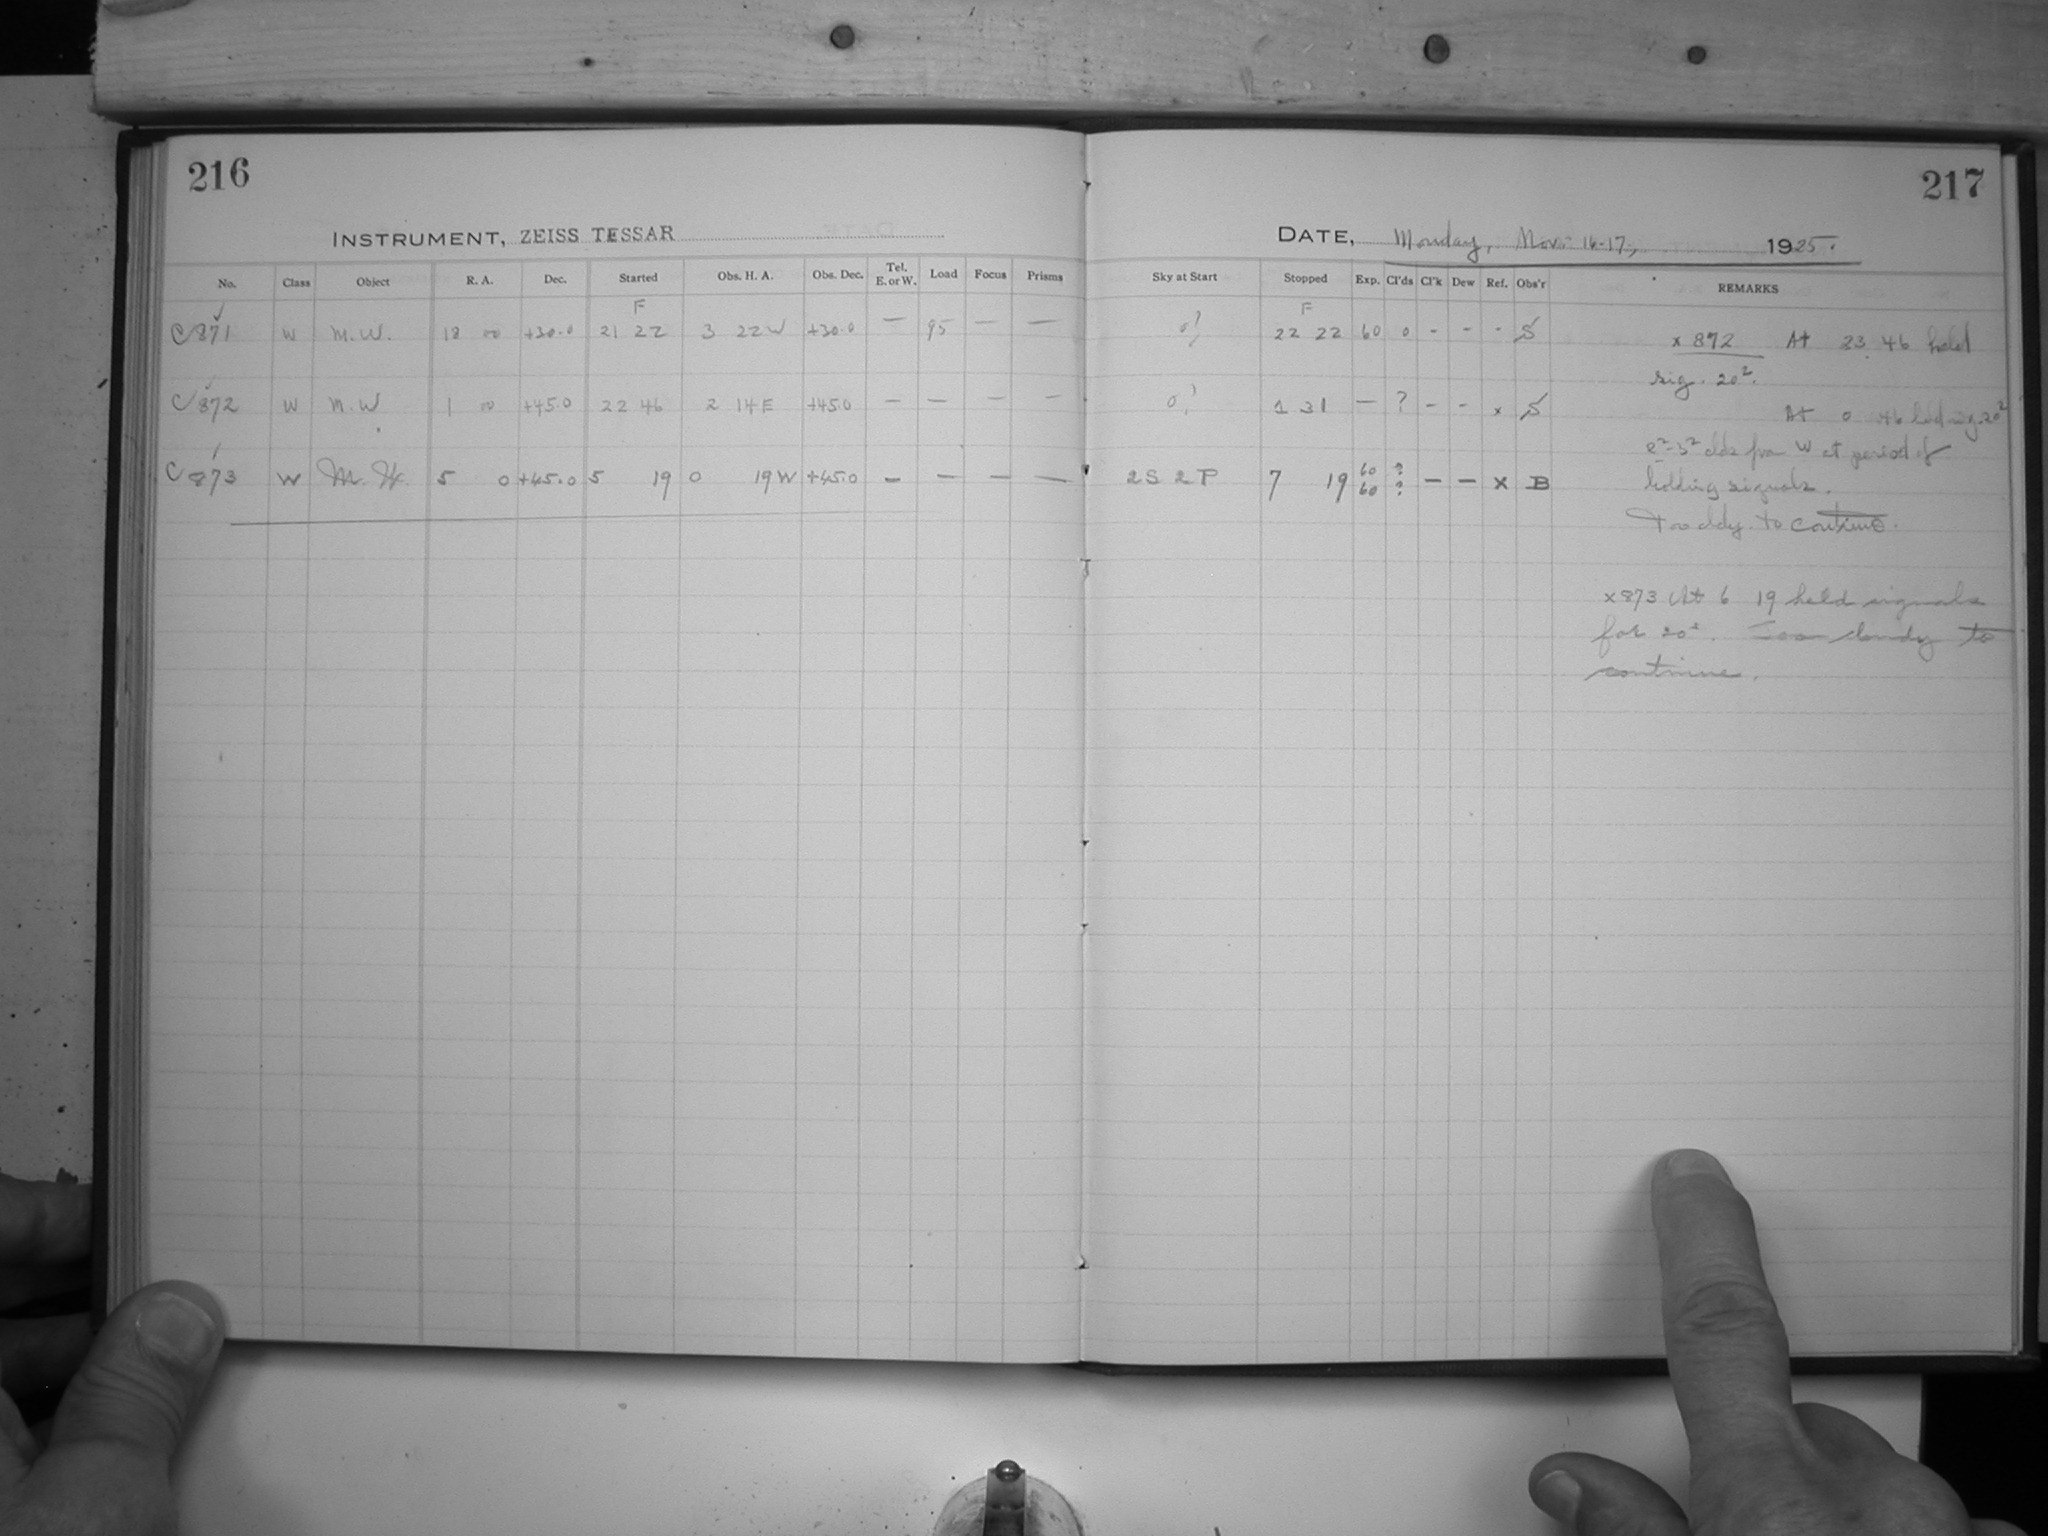 216
INSTRUMENT, ZEISS TESSAR
No. Class Object R. A. Dec. Started Obs. H. A. Obs. Dec. Tel. E. or W. Load Focus Prisms
F
C871 W M.W. 18 00 +30.0 21 22 3 22W +30.0 — 95 — —
C872 W M.W 1 00 +45.0 22 46 2 14E +45.0 — — — —
C873 W M.W. 5 0 +45.0 5 19 0 19W +45.0 — — — —
217
DATE, Monday, Nov. 16-17, 1925.
Sky at Start Stopped Exp. Cl'ds Cl'k Dew Ref. Obs'r REMARKS
F
22 22 60 0 - - - S
1 31 — ? - - x S
2S 2P 7 19 60 60 ? ? — — x B
x 872 At 23 46 held
sig. 20
At 0 46 held sig. 20
from W at period of
holding signals.
Too cldy. to continue.
x873 At 6 19 held signals
for 20. Too cloudy to
continue.